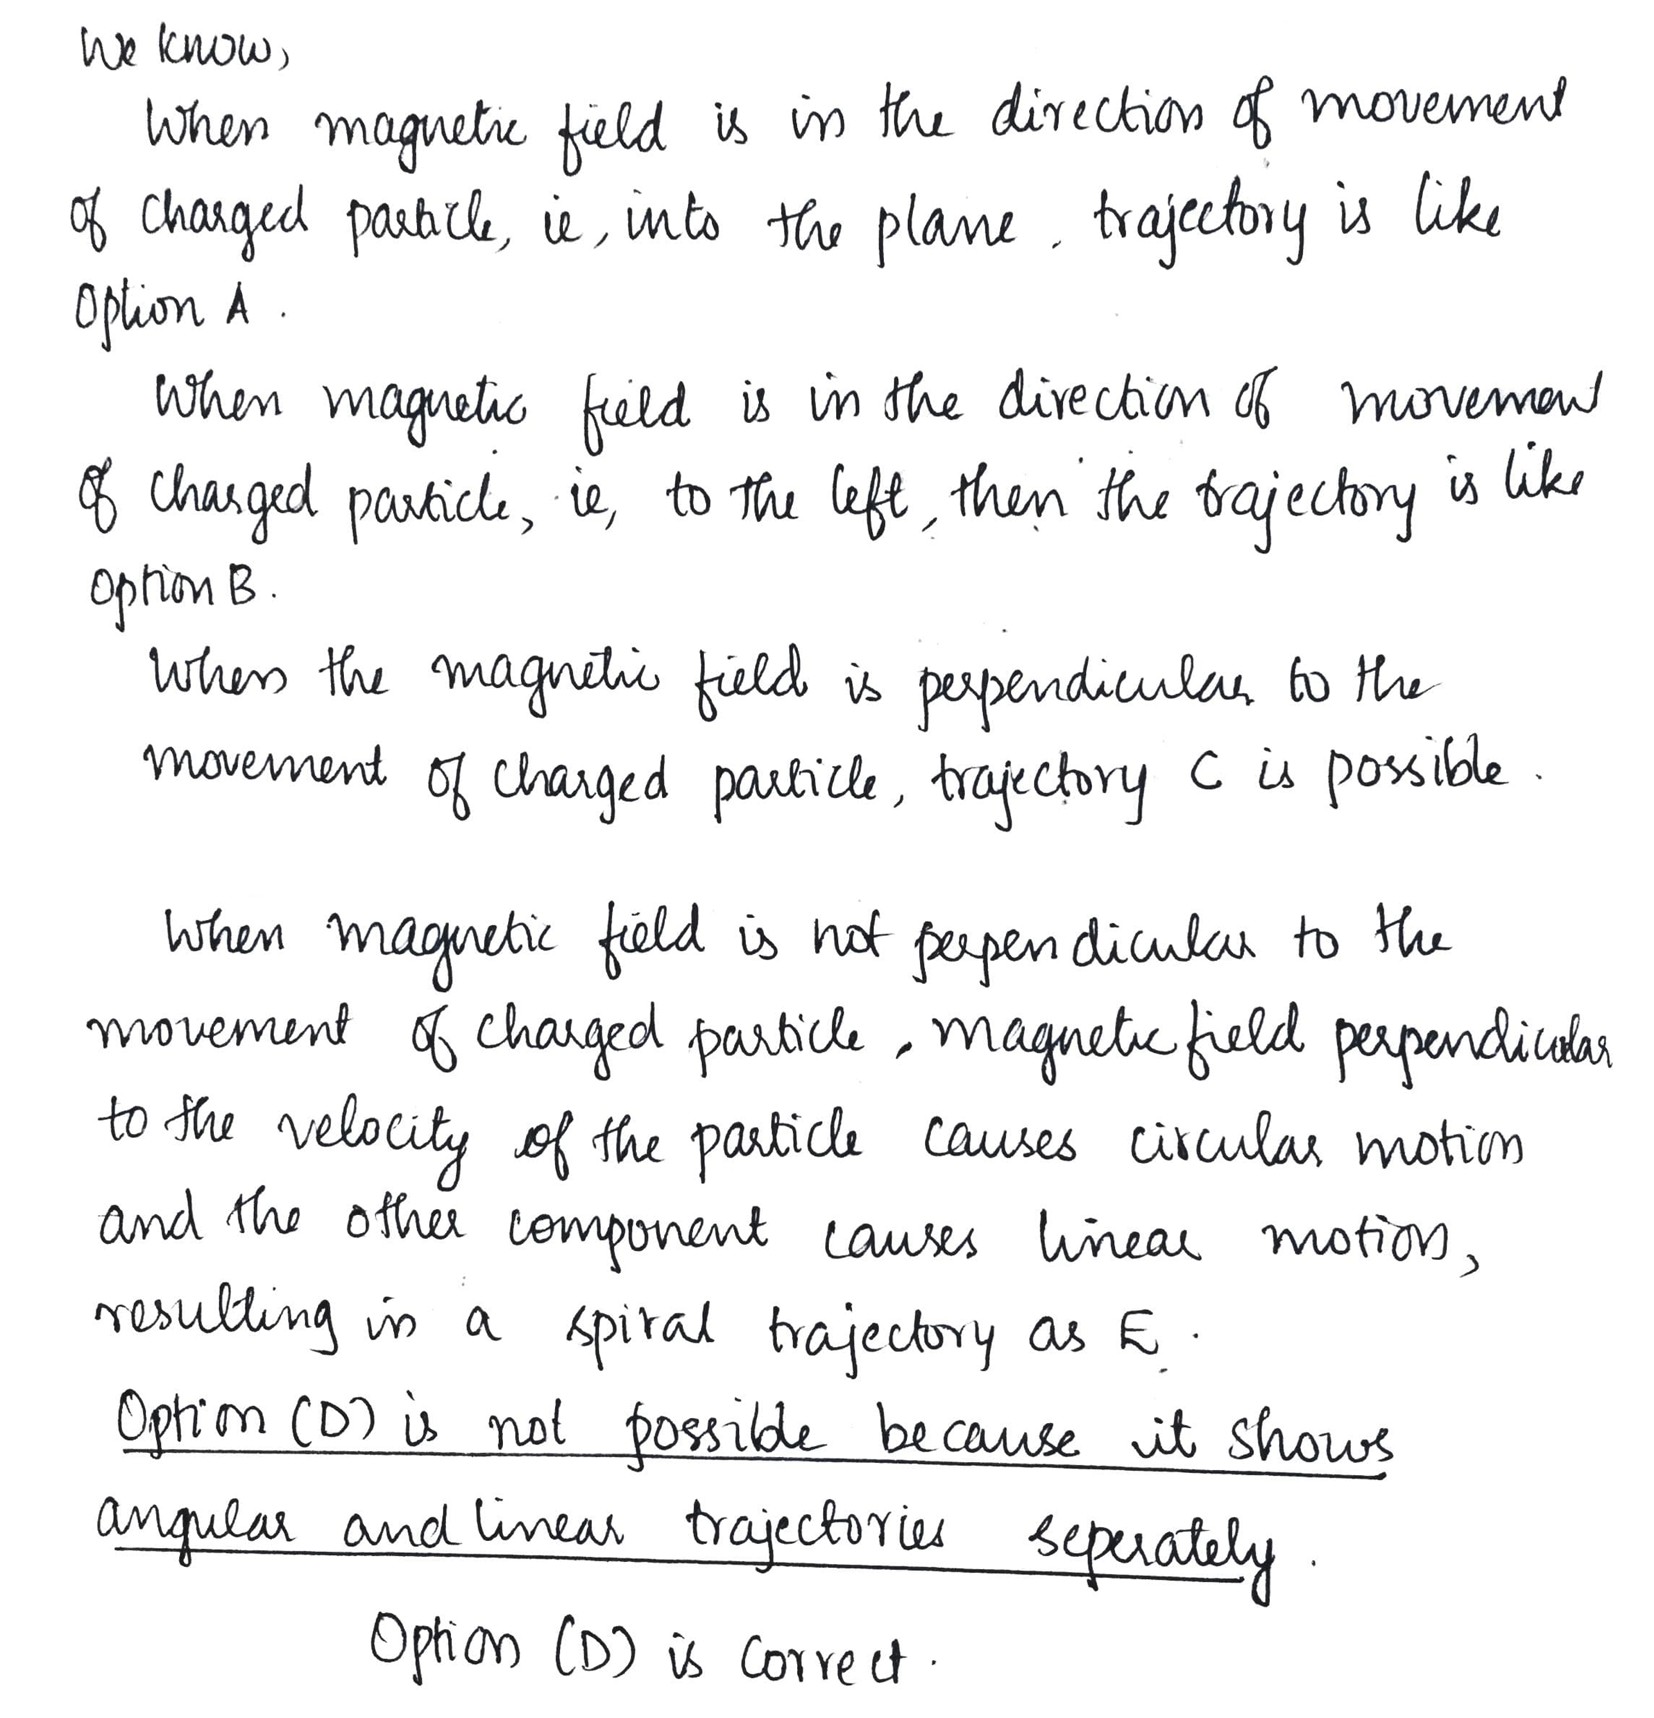 We know,
When magnetic field is in the direction of movement
of charged particle, ie, into the plane, trajectory is like
Option A.
When magnetic field is in the direction of movement
of charged particle, ie, to the left, then the trajectory is like
Option B.
When the magnetic field is perpendicular to the
movement of charged particle, trajectory C is possible.
When magnetic field is not perpendicular to the
movement of charged particle, magnetic field perpendicular
to the velocity of the particle causes circular motion
and the other component causes linear motion,
resulting in a spiral trajectory as E.
Option (D) is not possible because it shows
angular and linear trajectories seperately.
Option (D) is correct.